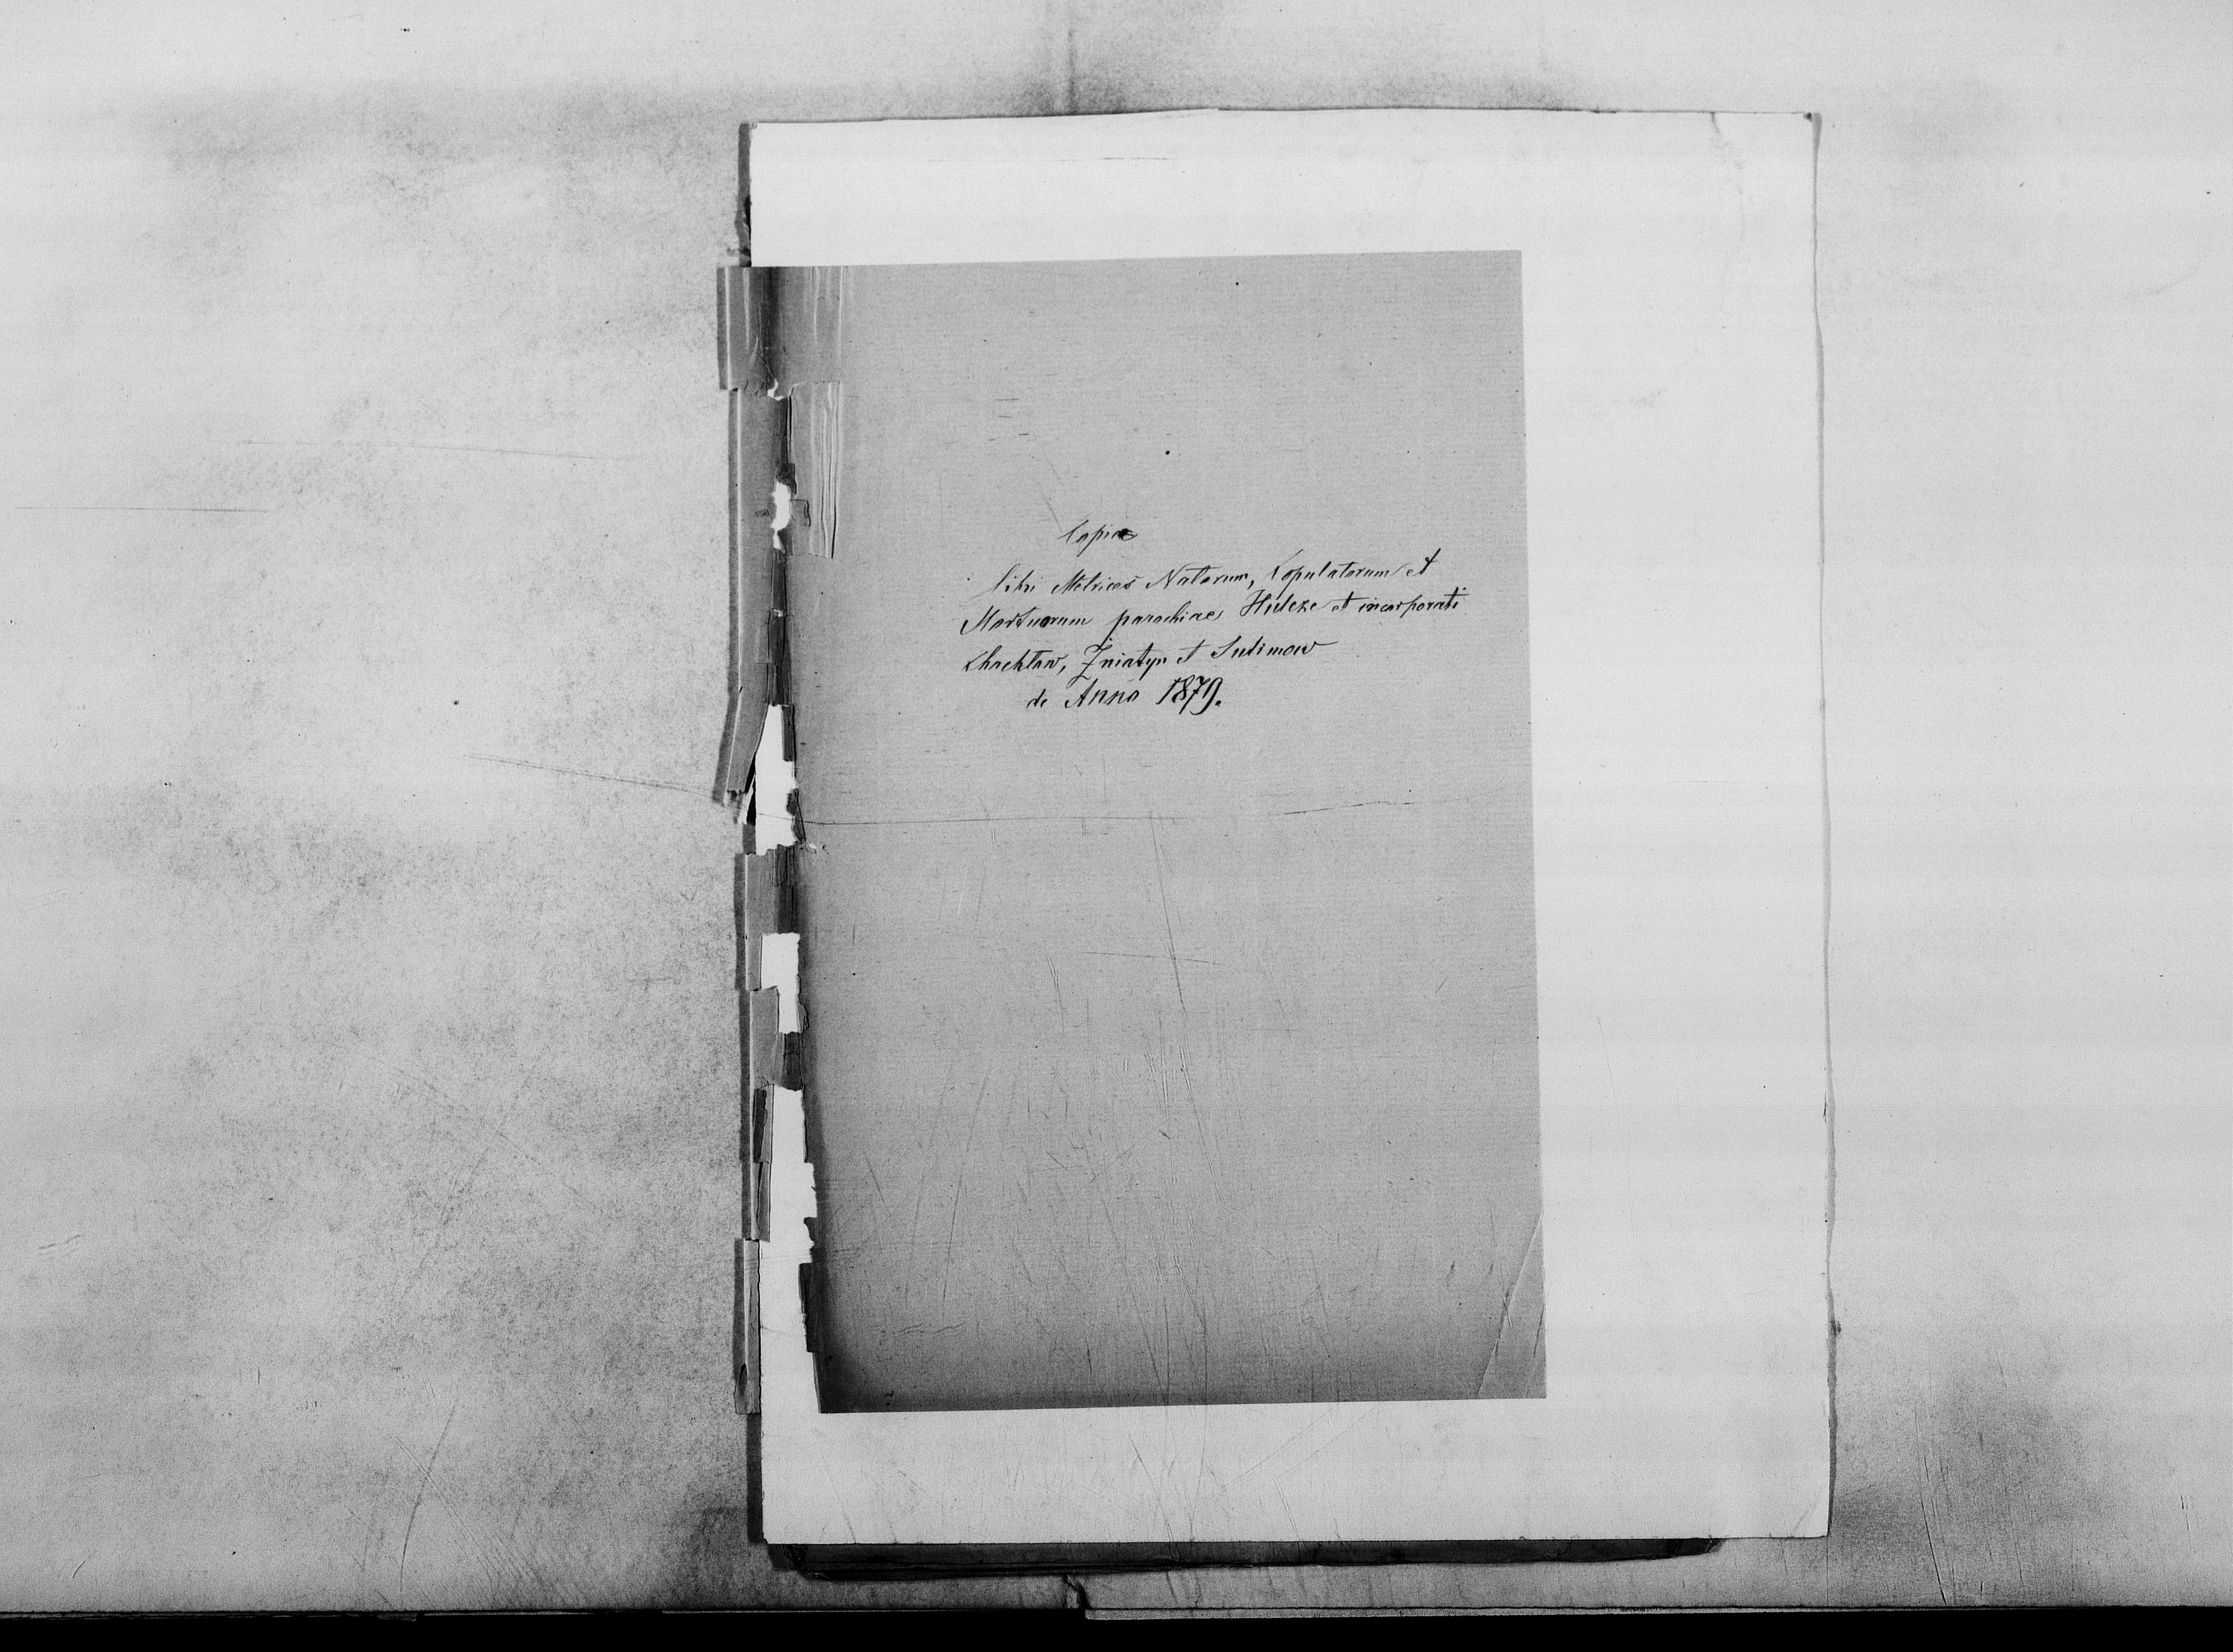 Copia
libri Metrices Natorum, Copulatorum et
Mortuorum parochiae Hulcze et incorporati
Chochłow, Żniatyn et Sulimow
de Anno 1879.